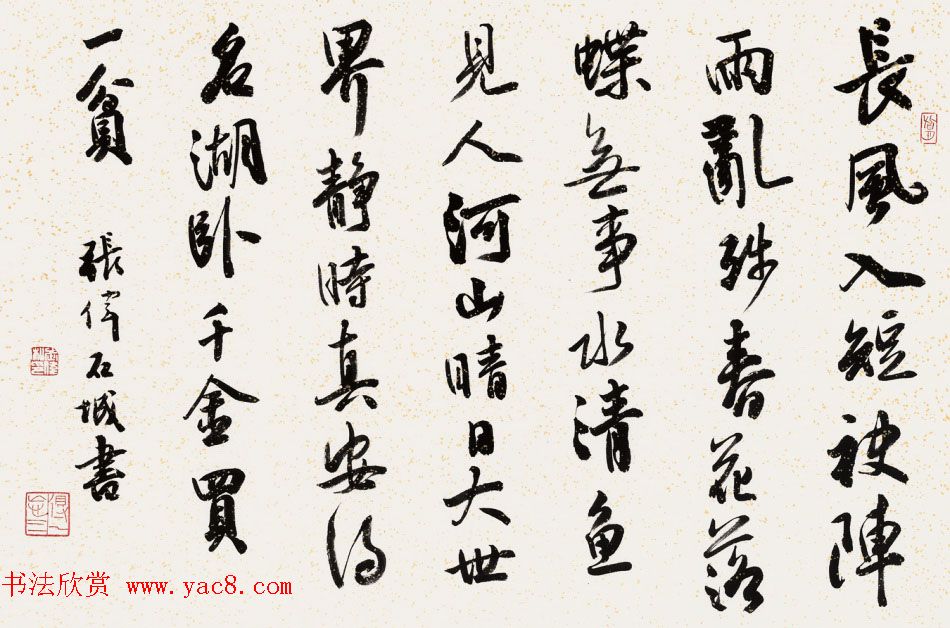 長風入短袂陣
雨亂殘春花落
蝶無事水清魚
見人河山晴日大世
界静時真安得
名湖卧千金買
一貧
張偉石城書
书法欣赏 www.yac8.com